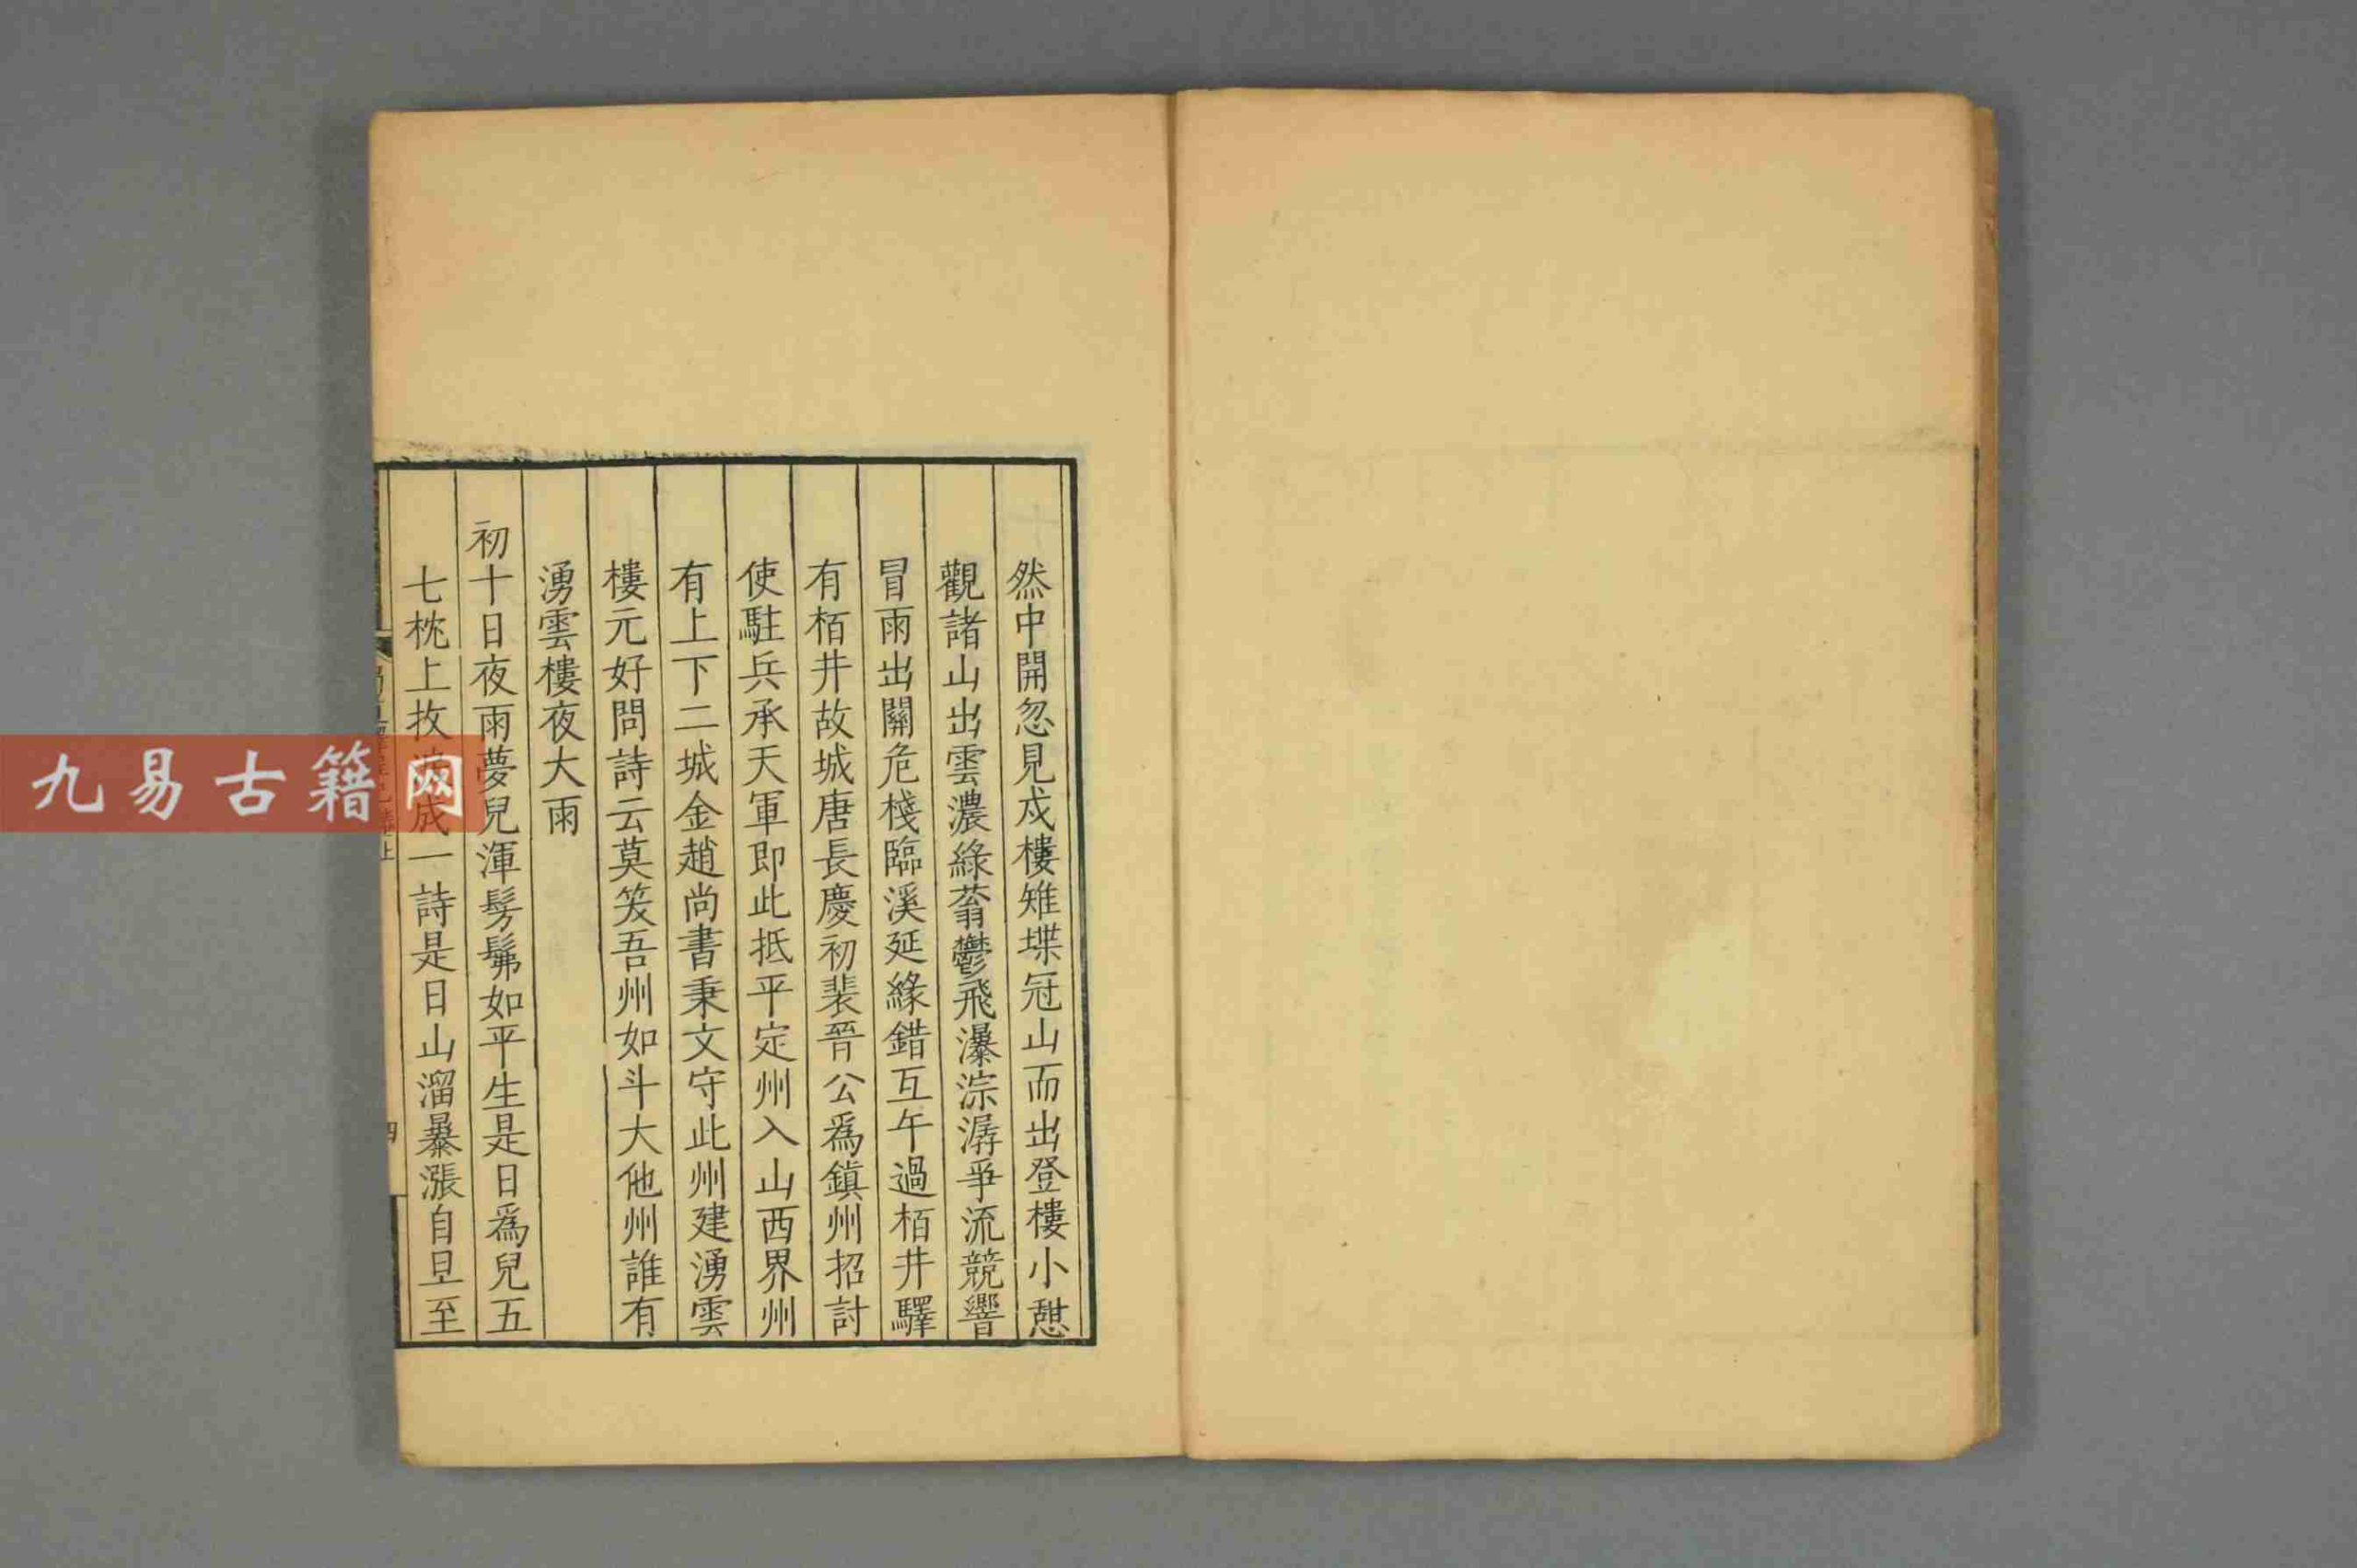 然中開忽見戍樓雉堞冠山而出登樓小憇
觀諸山出雲濃綠蓊鬱飛瀑淙潺爭流競響
冒雨出關危棧臨溪延緣錯互午過栢井驛
有栢井故城唐長慶初裴晉公爲鎮州招討
使駐兵承天軍即此抵平定州入山西界州
有上下二城金趙尚書秉文守此州建湧雲
樓元好問詩云莫笑吾州如斗大他州誰有
湧雲樓夜大雨
初十日夜雨夢兒渾髣髴如平生是日爲兒五
七枕上抆淚成一詩是日山溜暴漲自旦至
九易古籍网